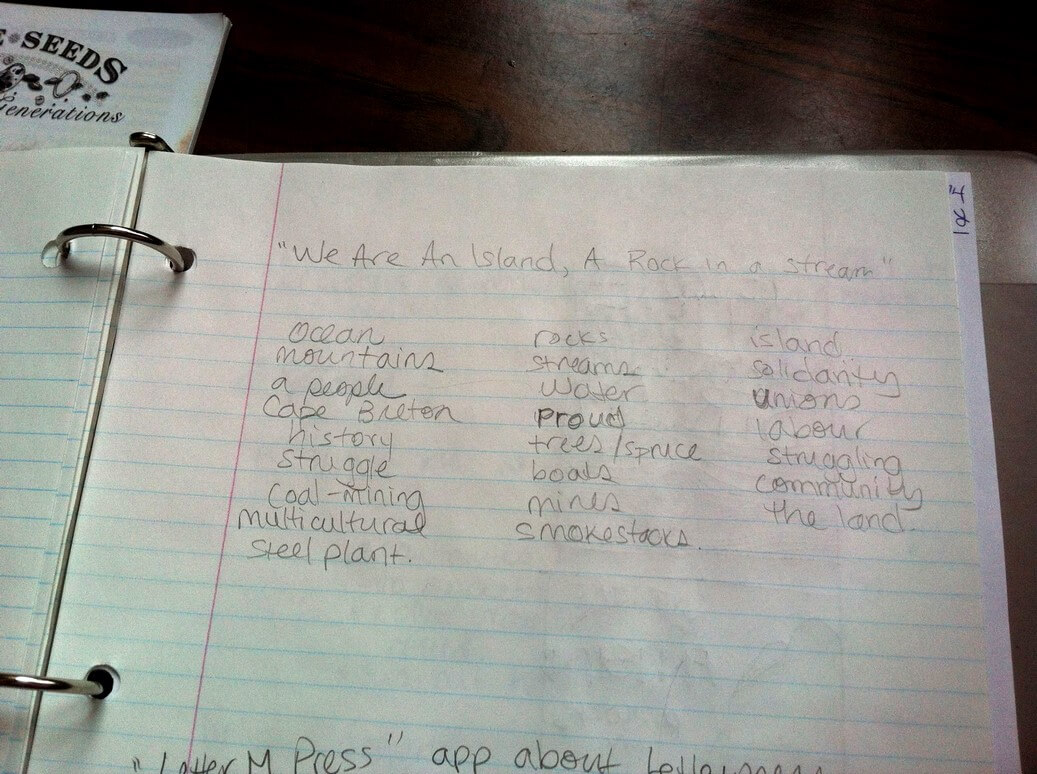 E SEEDS
Generations
"We Are An Island, A Rock in a stream"
ocean
mountains
a people
Cape Breton
history
struggle
Coal-mining
multicultural
steel plant.
rocks
streams
water
proud
trees/spruce
boats
mines
smokestacks.
island
solidarity
unions
labour
struggling
community
the land.
"Letter M Press" app about